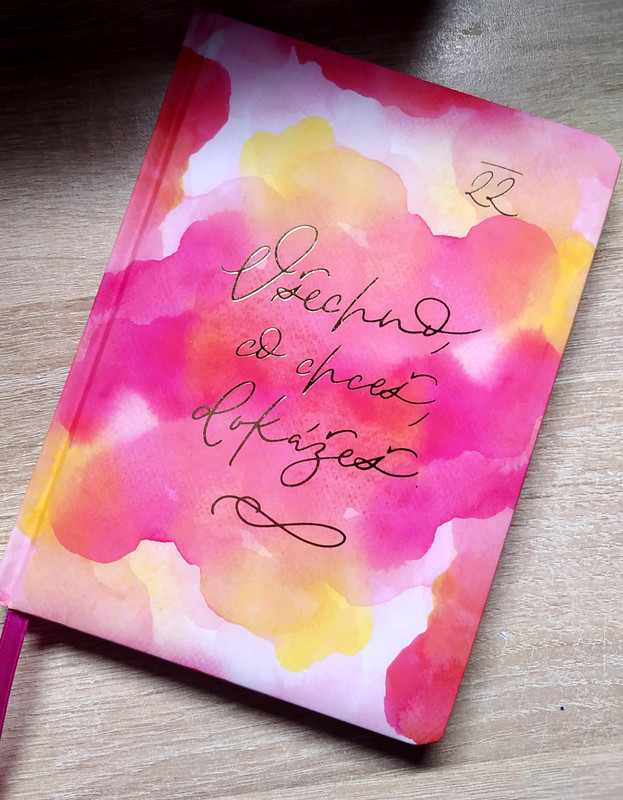 22
Všechno,
co chceš,
dokážeš